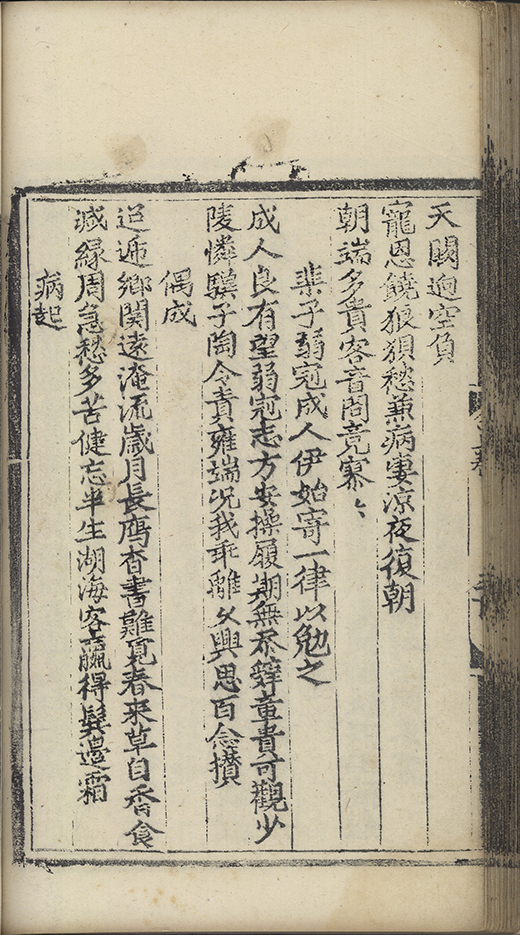 天闕逈空負
寵恩饒狼狽愁兼病凄涼夜復朝
朝端多貴客音問竟寥々
棐子弱冠成人伊始寄一律以勉之
成人良有望弱冠志方安操履期無忝辭童貴可觀少
陵憐驥子陶令責雍端况我乖離久興思百念攢
偶成
迢遞鄉関遠淹流歲月長鴈杳書難覓春來草自香食
减緣周急愁多苦健忘半生湖海客贏得髩邊霜
病起